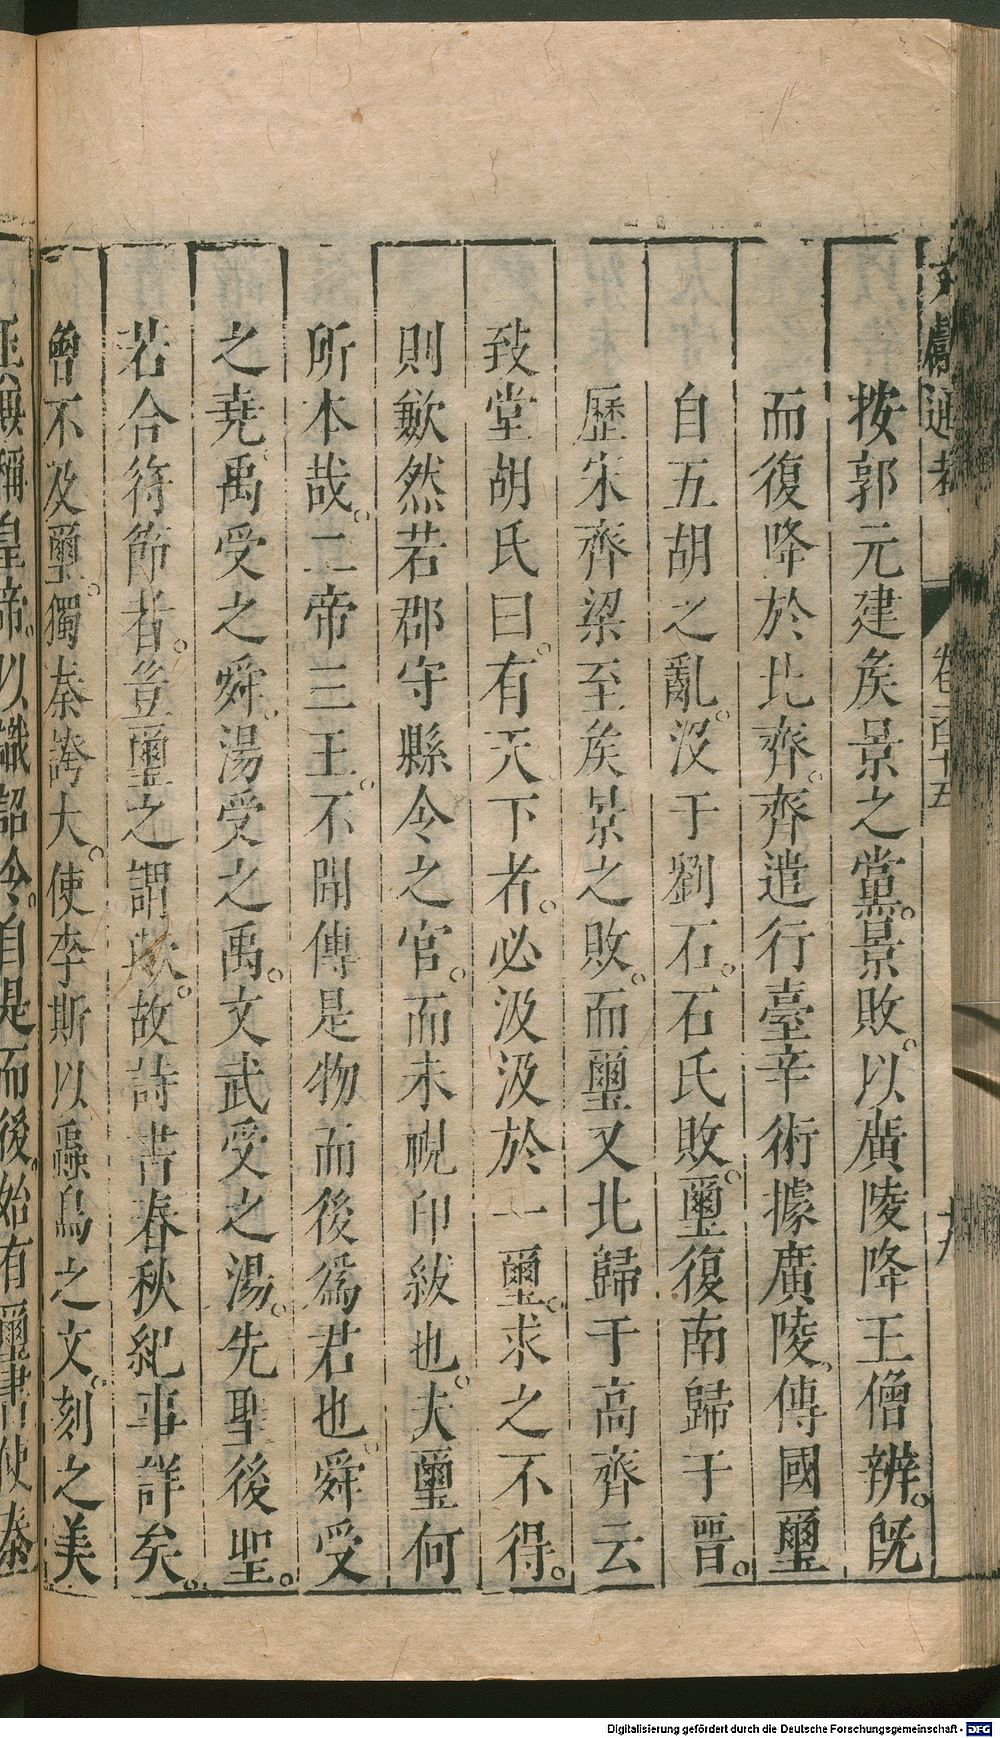 文獻通考 卷一百十五 十九
按郭元建矦景之黨。景敗。以廣陵降王僧辨。旣
而復降於北齊。齊遣行臺辛術據廣陵。傳國璽
自五胡之亂。沒于劉石。石氏敗。璽復南歸于晋。
歷宋齊梁至矦景之敗。而璽又北歸于高齊云
致堂胡氏曰。有天下者。必汲汲於一璽。求之不得。
則歉然若郡守縣令之官。而未視印紱也。夫璽何
所本哉。二帝三王。不聞傳是物而後爲君也。舜受
之堯。禹受之舜。湯受之禹。文武受之湯。先聖後聖。
若合符節者。豈璽之謂歟。故詩書春秋紀事詳矣。
曾不及璽。獨秦誇大。使李斯以蟲鳥之文。刻之美
玉。無稱皇帝。以識詔令。自是而後。始有璽書使秦
Digitalisierung gefördert durch die Deutsche Forschungsgemeinschaft - DFG